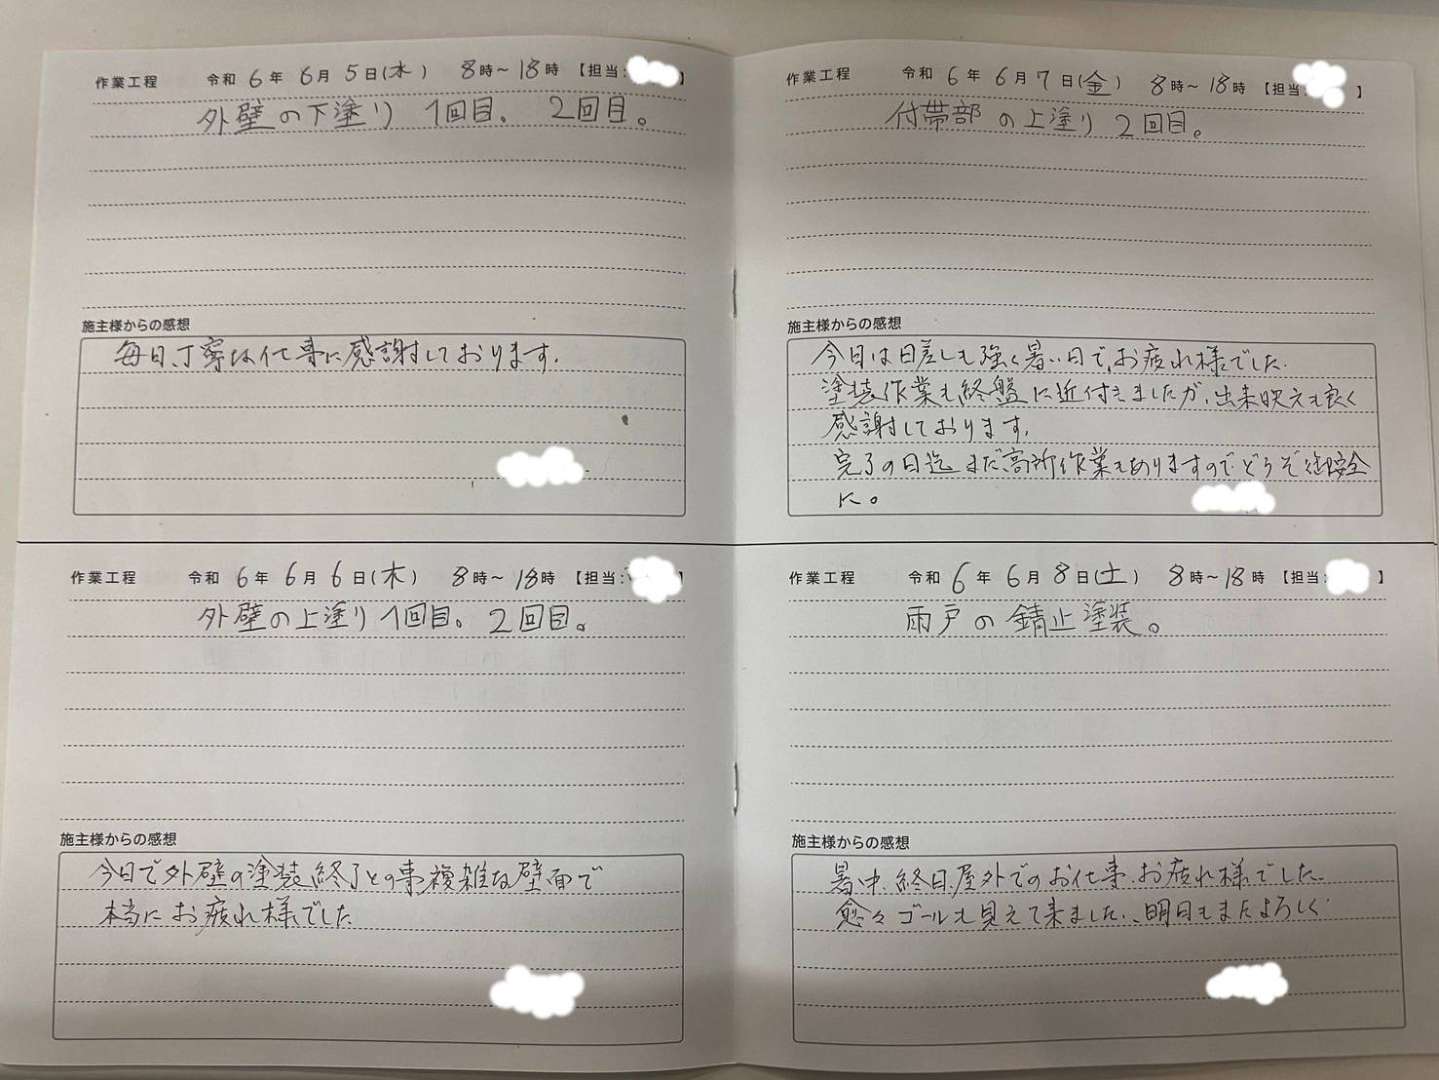 作業工程 令和 6年 6月 5日(水) 8時～18時 【担当: 】
外壁の下塗り 1回目。 2回目。
施主様からの感想
毎日、丁寧な仕事に感謝しております.
作業工程 令和 6年 6月 6日(木) 8時～18時 【担当: 】
外壁の上塗り1回目。2回目。
施主様からの感想
今日で外壁の塗装終了との事複雑な壁面で
本当にお疲れ様でした
作業工程 令和 6年 6月 7日(金) 8時～18時 【担当: 】
付帯部の上塗り2回目。
施主様からの感想
今日は日差しも強く暑い日で、お疲れ様でした.
塗装作業も終盤に近付きましたが、出来映えも良く
感謝しております.
完了の日迄まだ高所作業もありますのでどうぞ御安全
に。
作業工程 令和 6年 6月 8日(土) 8時～18時 【担当: 】
雨戸の錆止塗装。
施主様からの感想
暑中、終日、屋外でのお仕事、お疲れ様でした.
愈々ゴールも見えて来ました、明日もまたよろしく